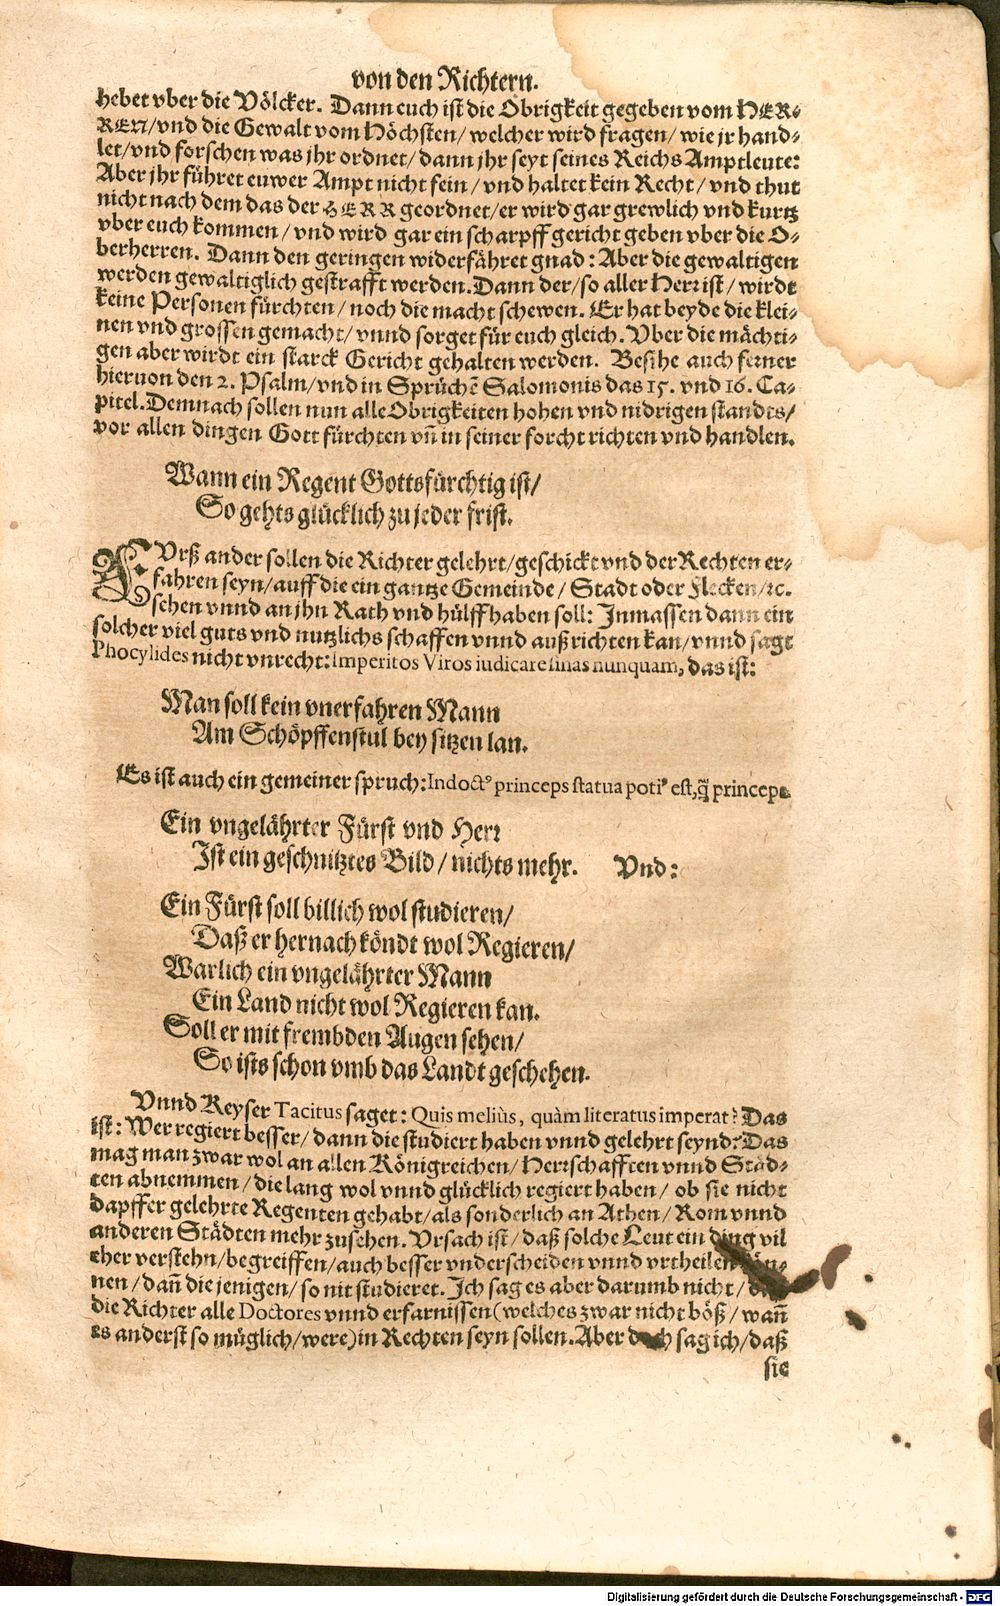 von den Richtern.
hebet vber die Völcker. Dann euch ist die Obrigkeit gegeben vom HER-
REN/vnd die Gewalt vom Höchsten/ welcher wird fragen/ wie jr hand-
let/vnd forschen was jhr ordnet/dann jhr seyt seines Reichs Amptleute:
Aber jhr führet euwer Ampt nicht fein/vnd haltet kein Recht/ vnd thut
nicht nach dem das der HERR geordnet/er wird gar grewlich vnd kurtz
vber euch kommen/ vnd wird gar ein scharpff gericht geben vber die O-
berherren. Dann den geringen widerfähret gnad: Aber die gewaltigen
werden gewaltiglich gestrafft werden. Dann der/so aller Herr ist/ wirdt
keine Personen fürchten/ noch die macht schewen. Er hat beyde die klei-
nen vnd grossen gemacht/ vnnd sorget für euch gleich. Vber die mächti-
gen aber wirdt ein starck Gericht gehalten werden. Besihe auch ferner
hieruon den 2. Psalm/vnd in Sprüchē Salomonis das 15. vnd 16. Ca-
pitel. Demnach sollen nun alle Obrigkeiten hohen vnd nidrigen standts/
vor allen dingen Gott fürchten vñ in seiner forcht richten vnd handlen.
Wann ein Regent Gottsfürchtig ist/
So gehts glücklich zu jeder frist.
FVrß ander sollen die Richter gelehrt/geschickt vnd der Rechten er-
fahren seyn/auff die ein gantze Gemeinde/ Stadt oder Flecken/ꝛc.
sehen vnnd an jhn Rath vnd hülff haben soll: Inmassen dann ein
solcher viel guts vnd nutzlichs schaffen vnnd außrichten kan/vnnd sagt
Phocylides nicht vnrecht: Imperitos Viros iudicare sinas nunquam, das ist:
Man soll kein vnerfahren Mann
Am Schöpffenstul bey sitzen lan.
Es ist auch ein gemeiner spruch: Indoctꝰ princeps statua potiꝰ est, q̃ princeps
Ein vngelährter Fürst vnd Herr
Ist ein geschnitztes Bild/ nichts mehr. Vnd:
Ein Fürst soll billich wol studieren/
Daß er hernach köndt wol Regieren/
Warlich ein vngelährter Mann
Ein Land nicht wol Regieren kan.
Soll er mit frembden Augen sehen/
So ists schon vmb das Landt geschehen.
Vnnd Keyser Tacitus saget: Quis meliùs, quàm literatus imperat? Das
ist: Wer regiert besser/ dann die studiert haben vnnd gelehrt seynd? Das
mag man zwar wol an allen Königreichen/ Herrschafften vnnd Städ-
ten abnemmen/ die lang wol vnnd glücklich regiert haben/ ob sie nicht
dapffer gelehrte Regenten gehabt/als sonderlich an Athen/ Rom vnnd
anderen Städten mehr zusehen. Vrsach ist/ daß solche Leut ein ding vil
eher verstehn/begreiffen/auch besser vnderscheiden vnnd vrtheilen kön-
nen/ dañ die jenigen/ so nit studieret. Ich sag es aber darumb nicht/
die Richter alle Doctores vnnd erfarnissen (welches zwar nicht böß/ wañ
es anderst so müglich/were) in Rechten seyn sollen. Aber doch sag ich/daß
sie
Digitalisierung gefördert durch die Deutsche Forschungsgemeinschaft - DFG